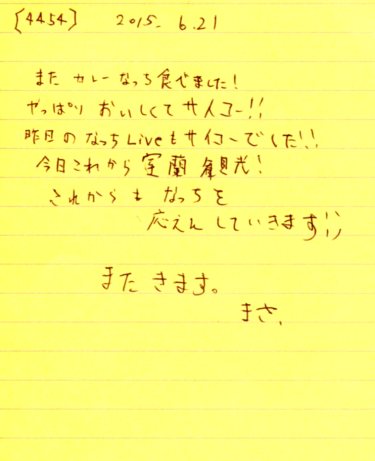 [4454] 2015. 6.21
また カレーなっち食べました!
やっぱり おいしくてサイコー!!
昨日の なっちLiveもサイコーでした!!
今日これから 室蘭 観光!
これからも なっちを
応えんしていきます!!
また きます。
まさ、